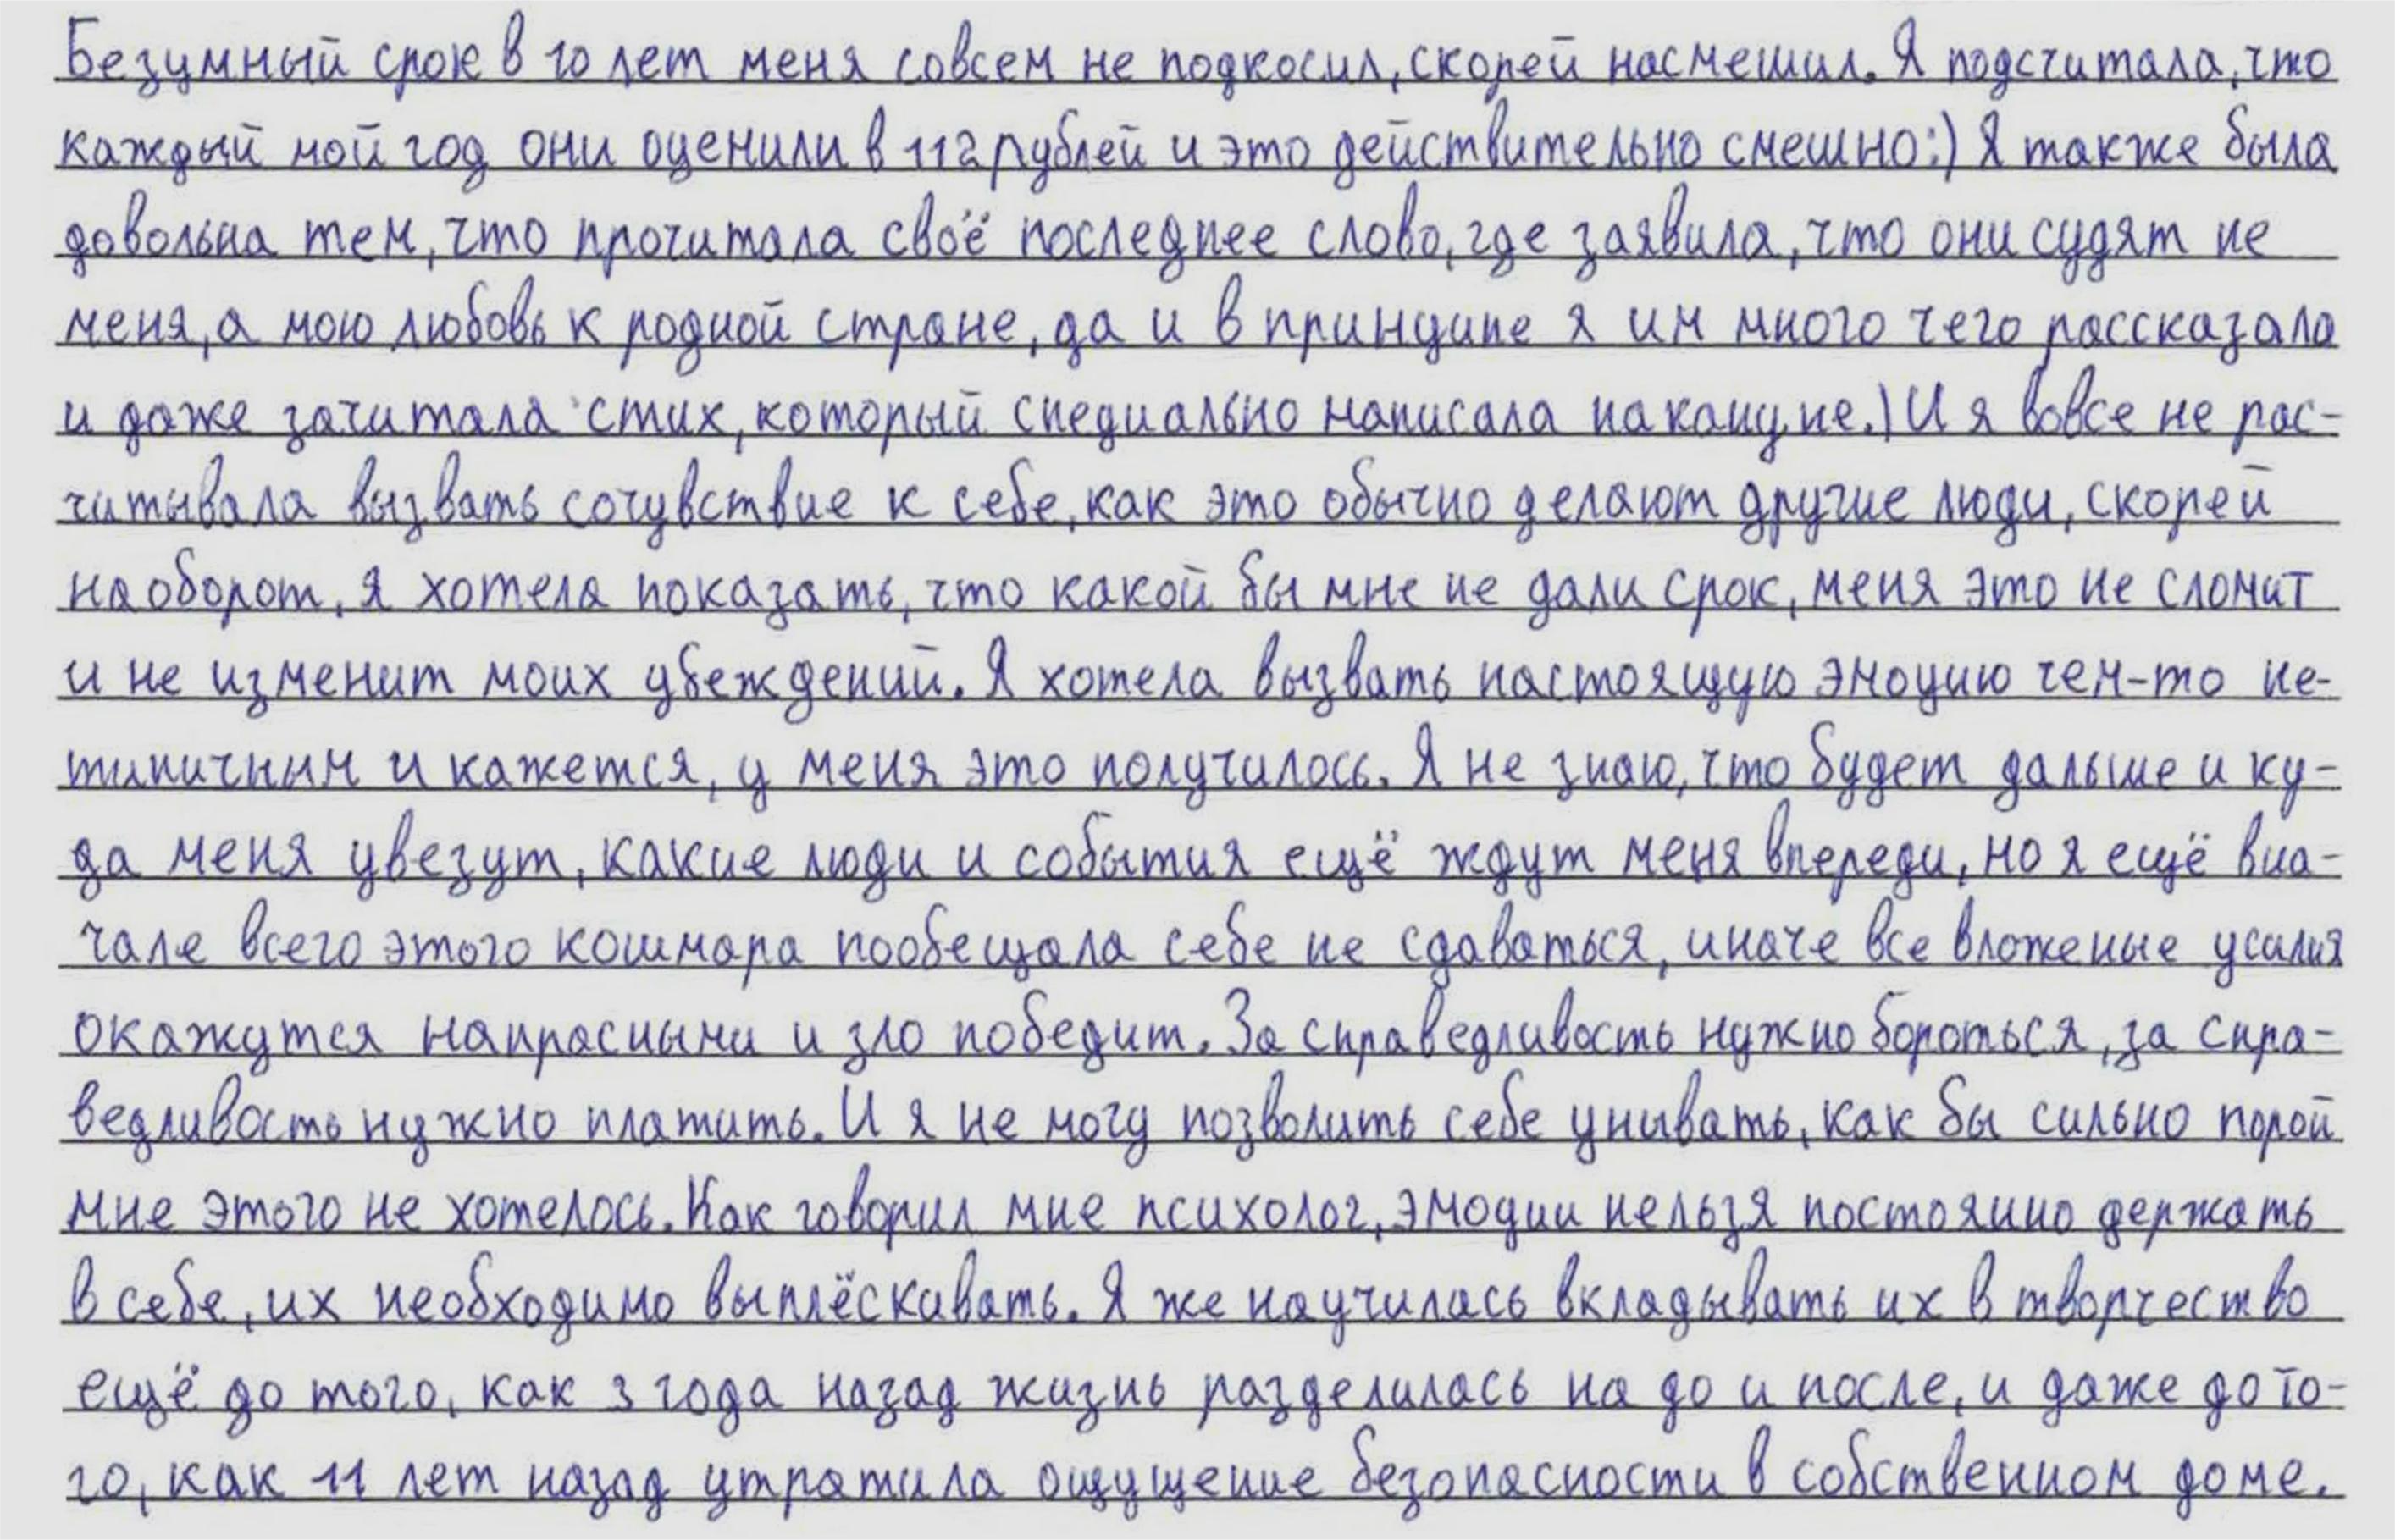 Безумный срок в 10 лет меня совсем не подкосил, скорей насмешил. Я подсчитала, что
каждый мой год они оценили в 112 рублей и это действительно смешно:) Я также была
довольна тем, что прочитала своё последнее слово, где заявила, что они судят не
меня, а мою любовь к родной стране, да и в принципе я им много чего рассказала
и даже зачитала стих, который специально написала накануне.) И я вовсе не рас-
читывала вызвать сочувствие к себе, как это обычно делают другие люди, скорей
наоборот, я хотела показать, что какой бы мне не дали срок, меня это не сломит
и не изменит моих убеждений. Я хотела вызвать настоящую эмоцию чем-то не-
типичным и кажется, у меня это получилось. Я не знаю, что будет дальше и ку-
да меня увезут, какие люди и события ещё ждут меня впереди, но я ещё вна-
чале всего этого кошмара пообещала себе не сдаваться, иначе все вложеные усилия
окажутся напрасными и зло победит. За справедливость нужно бороться, за спра-
ведливость нужно платить. И я не могу позволить себе унывать, как бы сильно порой
мне этого не хотелось. Как говорил мне психолог, эмоции нельзя постоянно держать
в себе, их необходимо выплёскивать. Я же научилась вкладывать их в творчество
ещё до того, как 3 года назад жизнь разделилась на до и после, и даже до то-
го, как 11 лет назад утратила ощущение безопасности в собственном доме.